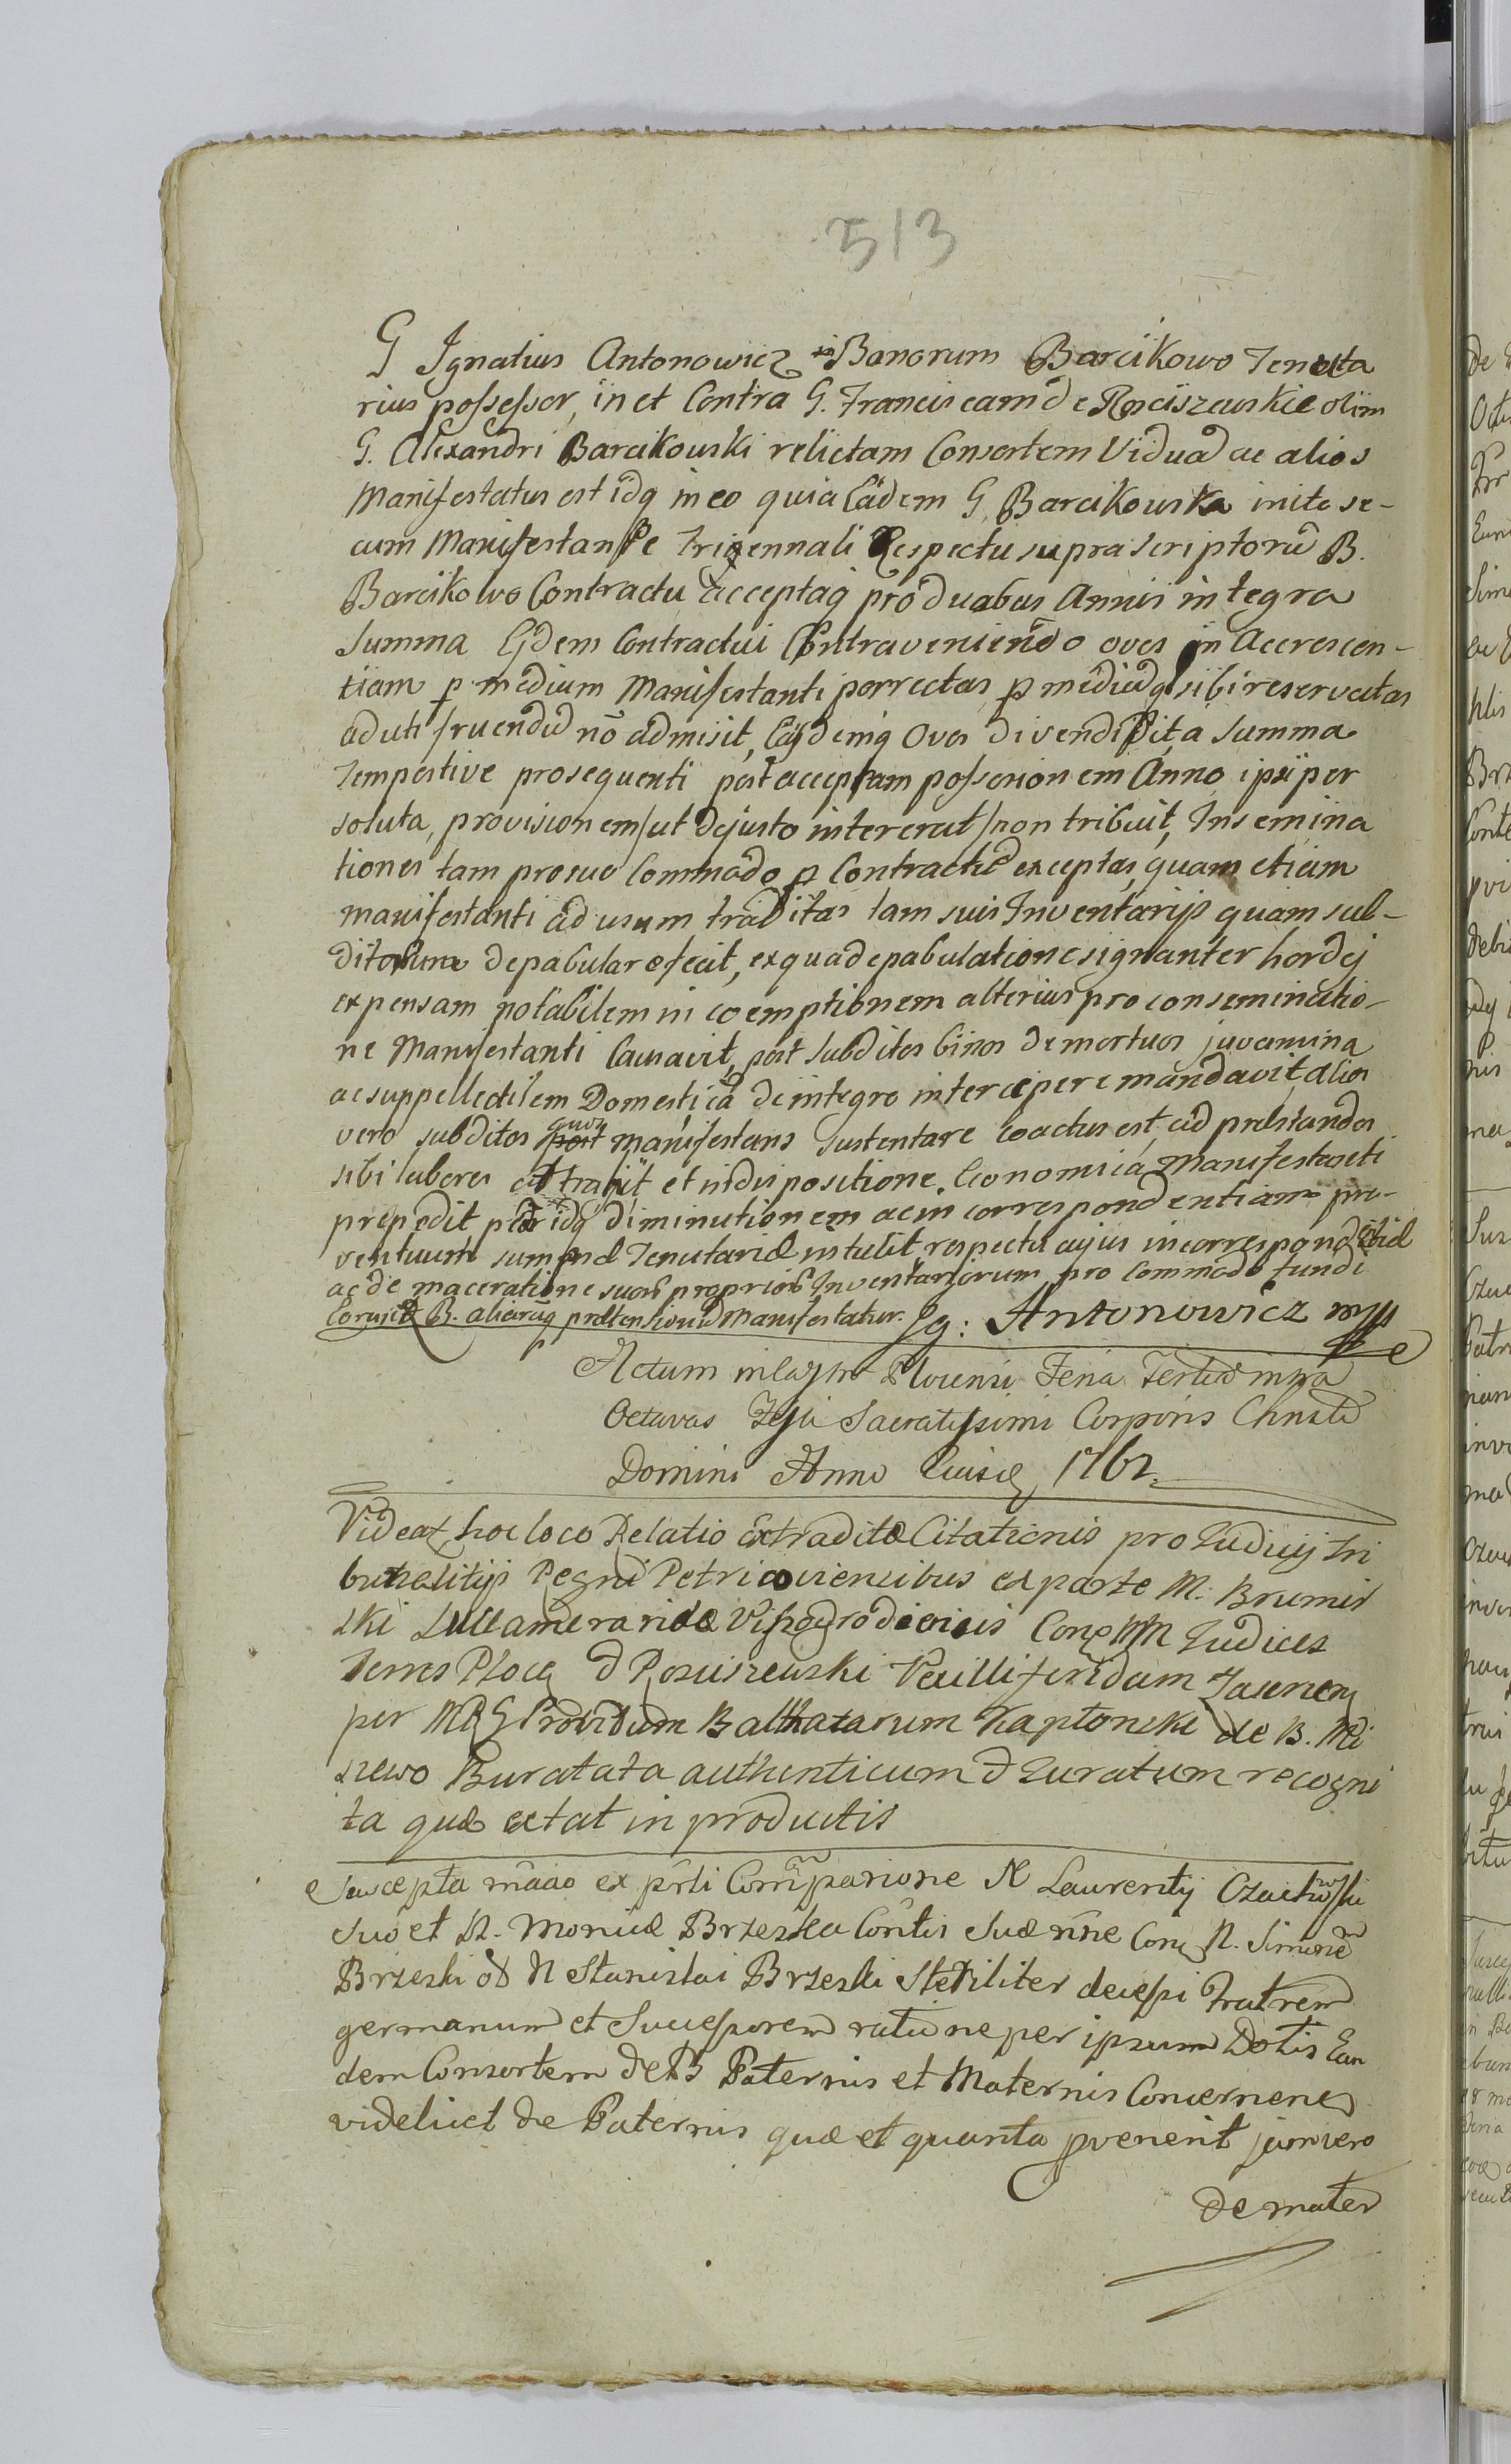 513
G Ignatius Antonowicz Bonorum Barcikowo Tenuta
rius possessor, in et Contra G. Franciscam de Rosciszewskie olim
G. Alexandri Barcikouski relictam Consortem Viduã ac alios
Manifestatus est idq in eo quia Eadem G. Barcikouska inito se-
cum Manifestante Triennali Respectu suprascriptorũ B.
Barcikowo Contractu acceptaq pro duabus Annis integra
Summa Ejdem Contractui Contraveniendo oves in Accrescen-
tiam p medium Manifestanti porrectas p mediũq sibi reservatas
ad uti fruendũ nõ admisit, Easdemq Oves divendidit, a Summa
Tempestive prosequenti post acceptam possesionem Anno ipsi per
soluta, provisionem/ut de justo intererat/non tribuit, Insemina
tiones tam pro suo Commodo p Contractũ exceptas, quam etiam
manifestanti ad usum traditas tam suis Inventarijs quam sub-
ditorum depabulare fecit, ex qua depabulatione signanter hordej
expensam notabilem in coemptionem alterius pro conseminatio-
ne Manifestanti Causavit, post subditos binos demortuos juvamina
ac suppellectilem Domesticã de integro intercipere mandavit, alios
vero subditos post quos manifestans sustentare coactus est, ad præstandos
sibi labores attraxit et in dispositione Economica Manifestanti
prepedit perq idq diminutionem ac incorrespondentiam pro-
ventuum summæ Tenutariæ intulit, respectu cujus incorrespondentiæ
ac de maceratione suorũ propriorũ Inventariorum pro Commodo fundi
Eorundẽ B. aliarũq prætensionũ Manifestatur. Ig: Antonowicz mpp
Actum in Castro Plocensi Feria Tertia infra
Octavas Festi Sacratissimi Corporis Christi
Domini Anno Eiusdẽ 1762
Videat hoc loco Relatio Extraditæ Citationis pro Judicijs Tri
bunalitijs Regni Petricoviensibus ex parte M. Brumir
ski Succameraridæ Vissogrodiensis Conz MM Judices
Terres Ploc d Rosciszewski Vexilliferidam
per Providum Balthazarum Kaptonski de B. Mi
szewo Buratata authenticum d Juratum recogni
ta quæ extat in productis
Suscepta ex Comparione N Laurentij
suo et N. Monicæ Brzeska Contis suæ nne Conz N. Simonem
Brzeski od N Stanislai Brzeski Steriliter decessi Fratrem
germanum et Successorem ratione per ipsum Dotis Ean
dem Consortem de B Paternis et Maternis Concernenẽ
videlicet de Paternis quæ et quanta pvenerit jam vero
de mater